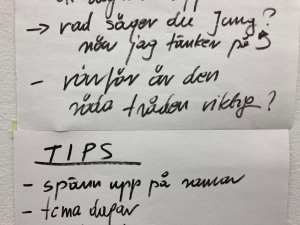 → vad säger du Jung?
när jag tänker på
- varför är den
röda tråden viktig?
TIPS
- spänn upp på ramar
- tema dagar